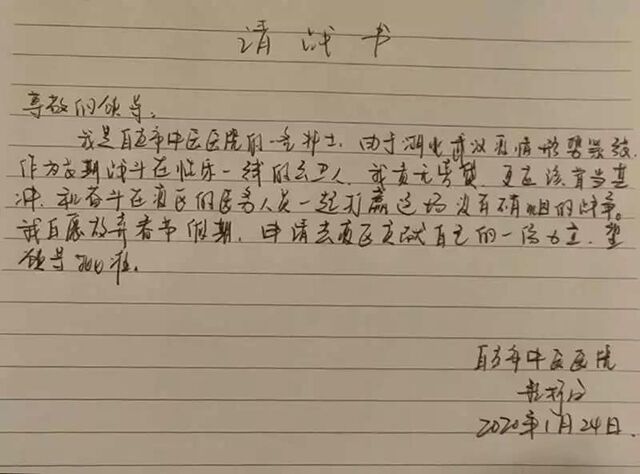 请战书
尊敬的领导:
我是自贡市中医医院的一名护士,由于湖北武汉疫情形势严峻,
作为长期战斗在临床一线的白卫人,我责无旁贷,更应该首当其
冲,和奋斗在疫区的医务人员一起打赢这场没有硝烟的战争。
我自愿放弃春节假期,申请去疫区贡献自己的一份力量,望
领导批准。
自贡市中医医院
2020年1月24日.